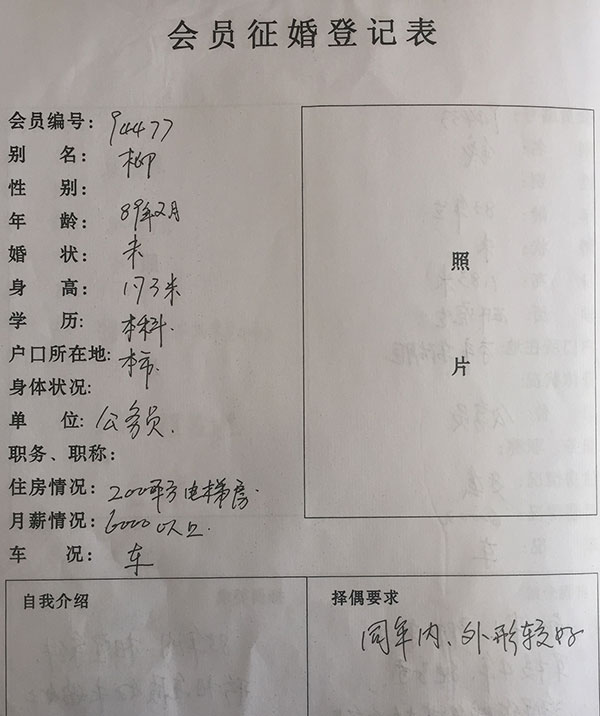 会员征婚登记表
会员编号：94477
别 名：柳
性 别：
年 龄：89年2月
婚 状：未
身 高：1.73米
学 历：本科.
户口所在地：本市.
身体状况：
单 位：公务员.
职务、职称：
住房情况：200平方电梯房.
月薪情况：6000以上.
车 况：车
照
片
自我介绍
择偶要求
同年内、外形较好